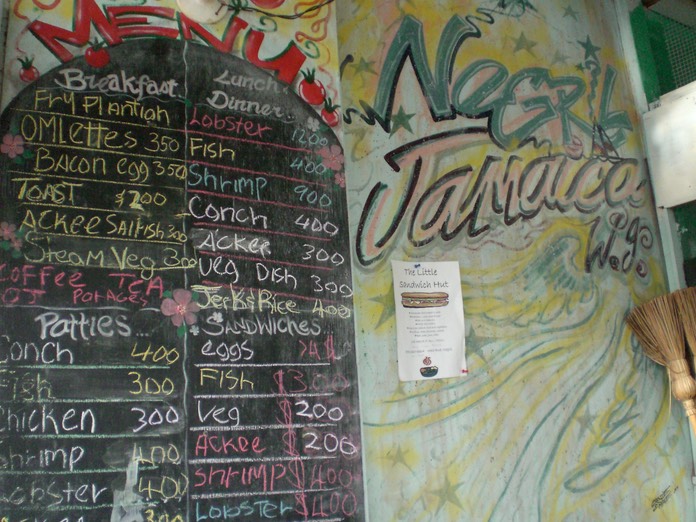 MENU
Breakfast
Fry Plantian
OMlettes 350
Bacon egg 350
TOAST $200
Ackee Salfish 300
Steam Veg 300
COFFEE TEA
OJ PORAGES
Patties...
Conch 400
Fish 300
Chicken 300
Shrimp 400
Lobster 400
300
Lunch
Dinner..
LOBSTER 1200
FISH 400
Shrimp 900
Conch 400
Ackee 300
Veg Dish 300
Jerk Rice 400
SANDWICHES
eggs
FISH $300
Veg $200
Ackee $200
Shrimp $400
LOBSTER $400
NEGRIL
Jamaica
W.I.
The Little
Sandwich Hut